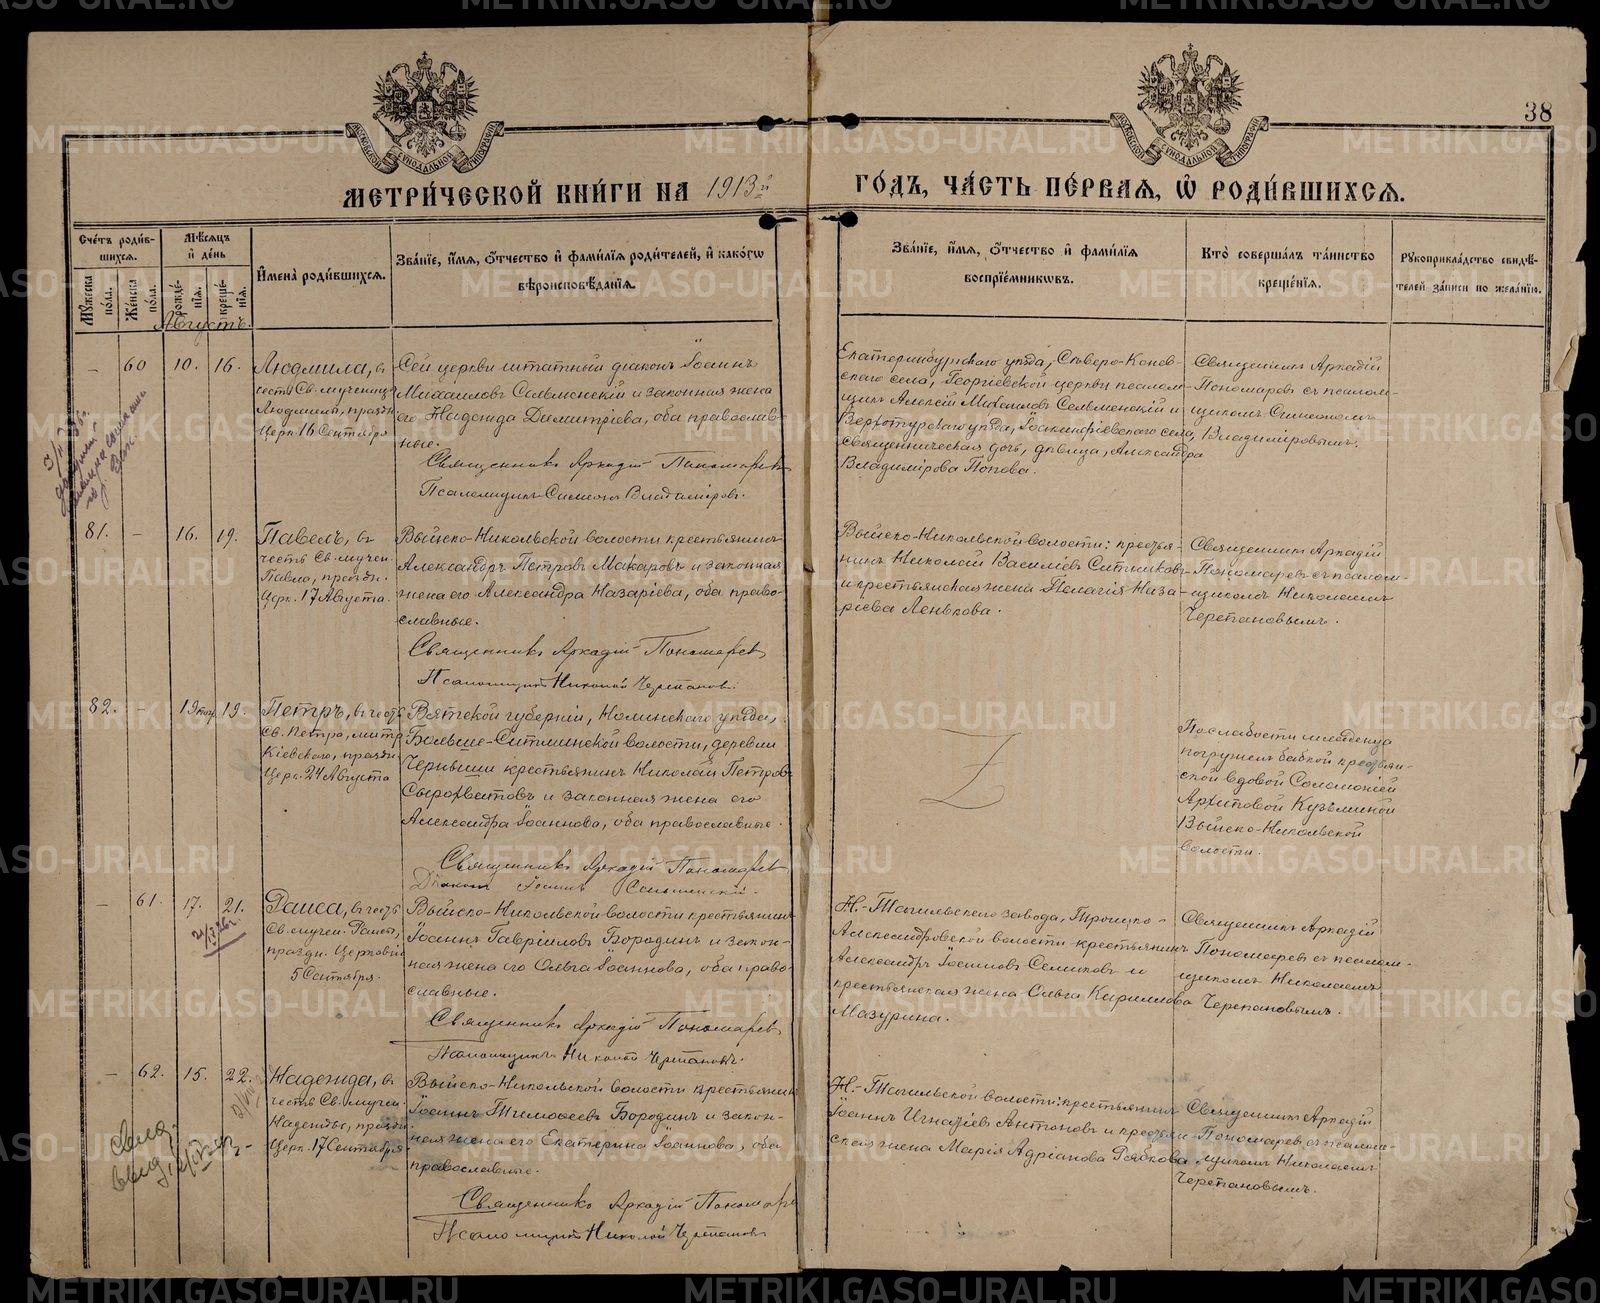 38
МОСКОВСКОЙ СѴНОДАЛЬНОЙ ТИПОГРАФІИ
МОСКОВСКОЙ СѴНОДАЛЬНОЙ ТИПОГРАФІИ
МЕТРИ́ЧЕСКОЙ КНИ́ГИ НА 1913й
ГО́ДЪ, ЧА́СТЬ ПЕ́РВАЯ, Ѡ РОДИ́ВШИХСЯ.
Сче́тъ роди́в-
шихся.
Мужеска по́ла.
Же́нска по́ла.
Мѣ́сяцъ
и де́нь
рожде́-
нія.
креще́-
нія.
И҆мена̀ роди́вшихся.
Зва́ніе, и҆́мя, ѻ҆́тчество и҆ фами́лія роди́телей, и҆ како́гѡ
вѣроисповѣ́данія.
Зва́ніе, и҆́мя, ѻ҆́тчество и҆ фами́лія
воспріе́мниковъ.
Кто̀ соверша́лъ та́инство
креще́нія.
Рукоприкла́дство свидѣ́-
телей за́писи по жела́нію.
Августъ.
–
60
10.
16.
Людмила, въ
честь Св. мученицы
Людмилы, праздн.
Церк. 16 Сентября
Сей церкви штатный діаконъ Іоаннъ
Михаиловъ Сельменскій и законная жена
его Надежда Димитріева, оба православ-
ные.
Священникъ Аркадій Пономаревъ
Псаломщикъ Симеонъ Владиміровъ.
Екатеринбургскаго уѣзда, Сѣверо-Конев-
скаго села, Георгіевской церкви псалом-
щикъ Алексій Михаиловъ Сельменскій и
Верхотурскаго уѣзда, Іоакинфіевскаго села,
священническая дочь, дѣвица, Александра
Владимірова Попова.
Священникъ Аркадій
Пономаревъ съ псалом-
щикомъ Симеономъ
Владиміровымъ.
81.
–
16.
19.
Павелъ, въ
честь Св. мучен.
Павла, праздн.
Церк. 17 Августа.
Выйско-Никольской волости крестьянинъ
Александръ Петровъ Макаровъ и законная
жена его Александра Назаріева, оба право-
славные.
Священникъ Аркадій Пономаревъ
Псаломщикъ Николай Черепановъ.
Выйско-Никольской волости: крестья-
нинъ Николай Василіевъ Ситниковъ
и крестьянская жена Пелагія Наза-
ріева Ленькова.
Священникъ Аркадій
Пономаревъ съ псалом-
щикомъ Николаемъ
Черепановымъ.
82.
–
19.
Петръ, въ честь
Св. Петра, митр.
Кіевскаго, праздн.
Церк. 24 Августа
Вятской губерніи, Нолинскаго уѣзда,
Больше-Ситминской волости, деревни
крестьянинъ Николай Петровъ
Сырохватовъ и законная жена его
Александра Іоаннова, оба православные.
Священникъ Аркадій Пономаревъ
Діаконъ Іоаннъ Сельменскій.
По слабости младенца
погруженъ бабкой крестьян-
ской вдовой Соломоніей
Архиповой Кузьминой
Выйско-Никольской
волости.
–
61.
17.
21.
Раиса, въ честь
Св. мучен. Раисы,
праздн. Церковію
5 Сентября.
Выйско-Никольской волости крестьянинъ
Іоаннъ Гавріиловъ Бородинъ и закон-
ная жена его Ольга Іоаннова, оба право-
славные.
Священникъ Аркадій Пономаревъ
Псаломщикъ Николай Черепановъ.
Н.-Тагильскаго завода, Троицко-
Александровской волости крестьянинъ
Александръ Семиковъ и
крестьянская жена Ольга Кириллова
Мазурина.
Священникъ Аркадій
Пономаревъ съ псалом-
щикомъ Николаемъ
Черепановымъ.
–
62.
15.
22.
Надежда, въ
честь Св. мучен.
Надежды, праздн.
Церк. 17 Сентября
Выйско-Никольской волости крестьянинъ
Іоаннъ Тимоѳеевъ Бородинъ и закон-
ная жена его Екатерина Іоаннова, оба
православные.
Священникъ Аркадій Пономаревъ
Псаломщикъ Николай Черепановъ
Н.-Тагильской волости: крестьянинъ
Іоаннъ Игнатіевъ Антоновъ и крестьян-
ская жена Марія Адріанова Рябкова
Священникъ Аркадій
Пономаревъ съ псалом-
щикомъ Николаемъ
Черепановымъ.
METRIKI.GASO-URAL.RU